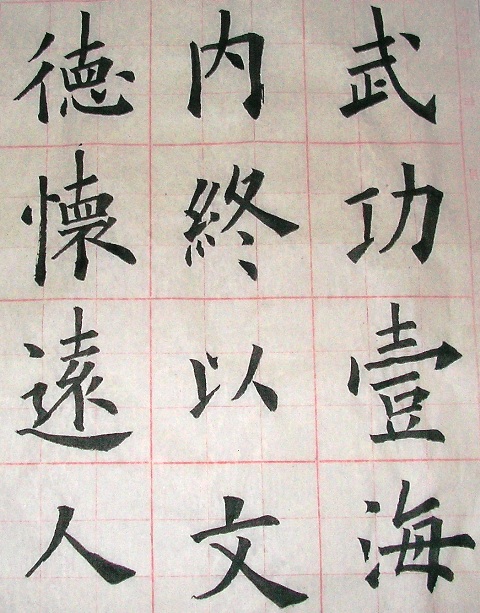 武功壹海
内終以文
德懷遠人